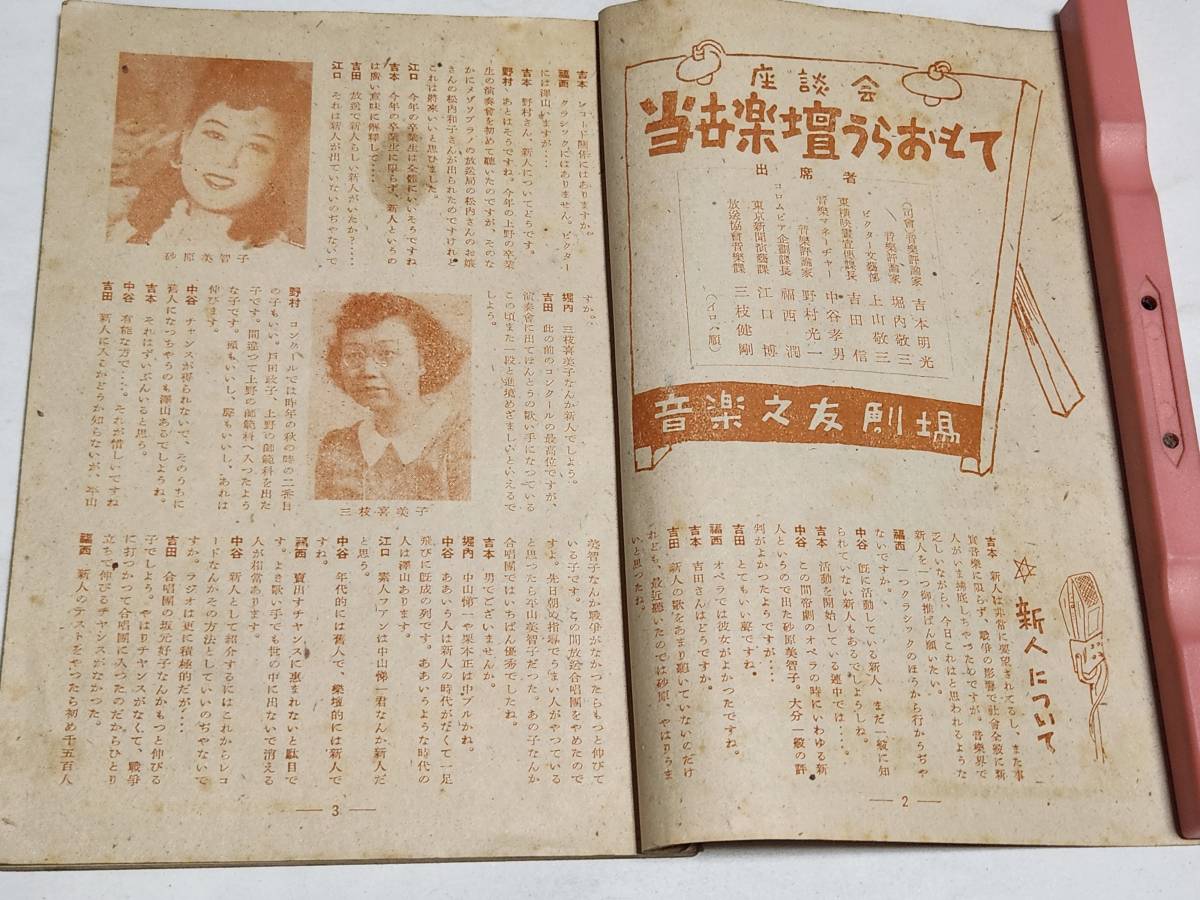 座談会
当世楽壇うらおもて
出席者
(司會)音樂評論家 吉本明光
音樂評論家 堀内敬三
ビクター文藝部 上山敬三
東横映畫宣傳課長 吉田信
音樂マネーヂャー 中谷孝男
音樂評論家 野村光一
コロムビア企劃課長 福西潤
東京新聞演藝課 江口博
放送協會音樂課 三枝健剛
(イロハ順)
音楽之友劇場
新人について
吉本 新人は非常に要望されてるし、また事
實音樂に限らず、戰爭の影響で社會全般に新
人がいま拂底しちやつたわけですが、音樂界で
乏しいながら、今日これはと思われるような
新人を一つ御推せん願いたい。
福西 一つクラシックのほうから行かうぢや
ないですか。
中谷 既に活動している新人、まだ一般に知
られていない新人もあるでしようしね。
吉本 活動を開始している連中では‥‥。
中谷 この間帝劇のオペラの時にいわゆる新
人というので出た砂原美智子。大分一般の評
判がよかつたようですが‥‥
吉田 とてもいい聲ですね。
福西 オペラでは彼女がよかつたですね。
吉本 吉田さんはどうですか。
吉田 新人の歌をあまり聽いていないのだけ
れども、最近聽いたのでは砂原、やはりうま
いと思つたね。
— 2 —
吉本 レコード關係にはありますか。
福西 クラシックにはありません。ビクター
には澤山いますが‥‥
吉本 野村さん、新人についてどうです。
野村 あとはそうですね。今年の上野の卒業
生の演奏會を初めて聽いたのですが、そのな
かにメゾソプラノの放送局の松内さんのお孃
さんの松内和子さんが出られたのですけれど
これは將來いいと思ひました。
江口 今年の卒業生は全部にいいそうですね
吉本 今年の卒業生に限らず、新人というの
は廣い意味に解釋して‥‥
吉田 放送で新人らしい新人がいたか?‥‥
江口 それは新人が出ていないのぢやないで
砂原美智子
すか。
堀内 三枝喜美子なんか新人でしよう。
吉田 此の前のコンクールの最高位ですが、
演奏會に出てほんとうの歌い手になつている
この頃また一段と進境めざましいといえるで
しよう。
三枝喜美子
野村 コンクールでは昨年の秋の時の二番目
の子もいい。戸田政子、上野の師範科を出た
子です。間違つて上野の師範科へ入つたよう
な子です。頭もいいし、聲もいいし、あれは
伸びます。
中谷 チャンスが得られないで、そのうちに
舊人になつちやうのも澤山あるでしようね。
吉本 それはずいぶんいると思う。
中谷 有能な方で‥‥。それが惜しいですね
吉田 新人に入るかどうか知らないが、平山
美智子なんか戰爭がなかつたらもつと伸びて
いる子です。この間放送合唱團をやめたので
すよ。先日朝の指導でうまい人がやつている
と思つたら平山美智子だつた。あの子なんか
合唱團ではいちばん優秀でしたね。
吉本 男でございませんか。
堀内 中山悌一や栗本正は中ブルかね。
中谷 ああいう人は新人の時代がなくて一足
飛びに既成の列です。ああいうような時代の
人は澤山あります。
江口 素人フアンは中山悌一君なんか新人だ
と思う。
中谷 年代的には舊人で、樂壇的には新人で
すね。
福西 賣出すチヤンスに惠まれないと駄目で
す。よき歌い手でも世の中に出ないで消える
人が相當あります。
中谷 新人として紹介するにはこれからレコ
ードなんかその方法としていいのぢやないで
すか。ラジオは更に積極的だが‥‥
吉田 合唱團の坂元好子なんかもつと伸びる
子でしよう。やはりチヤンスがなくて、戰爭
に打つかつて合唱團に入つたのだからひとり
立ちで伸びるチヤンスがなかつた。
福西 新人のテストをやつたら初め千五百人
— 3 —